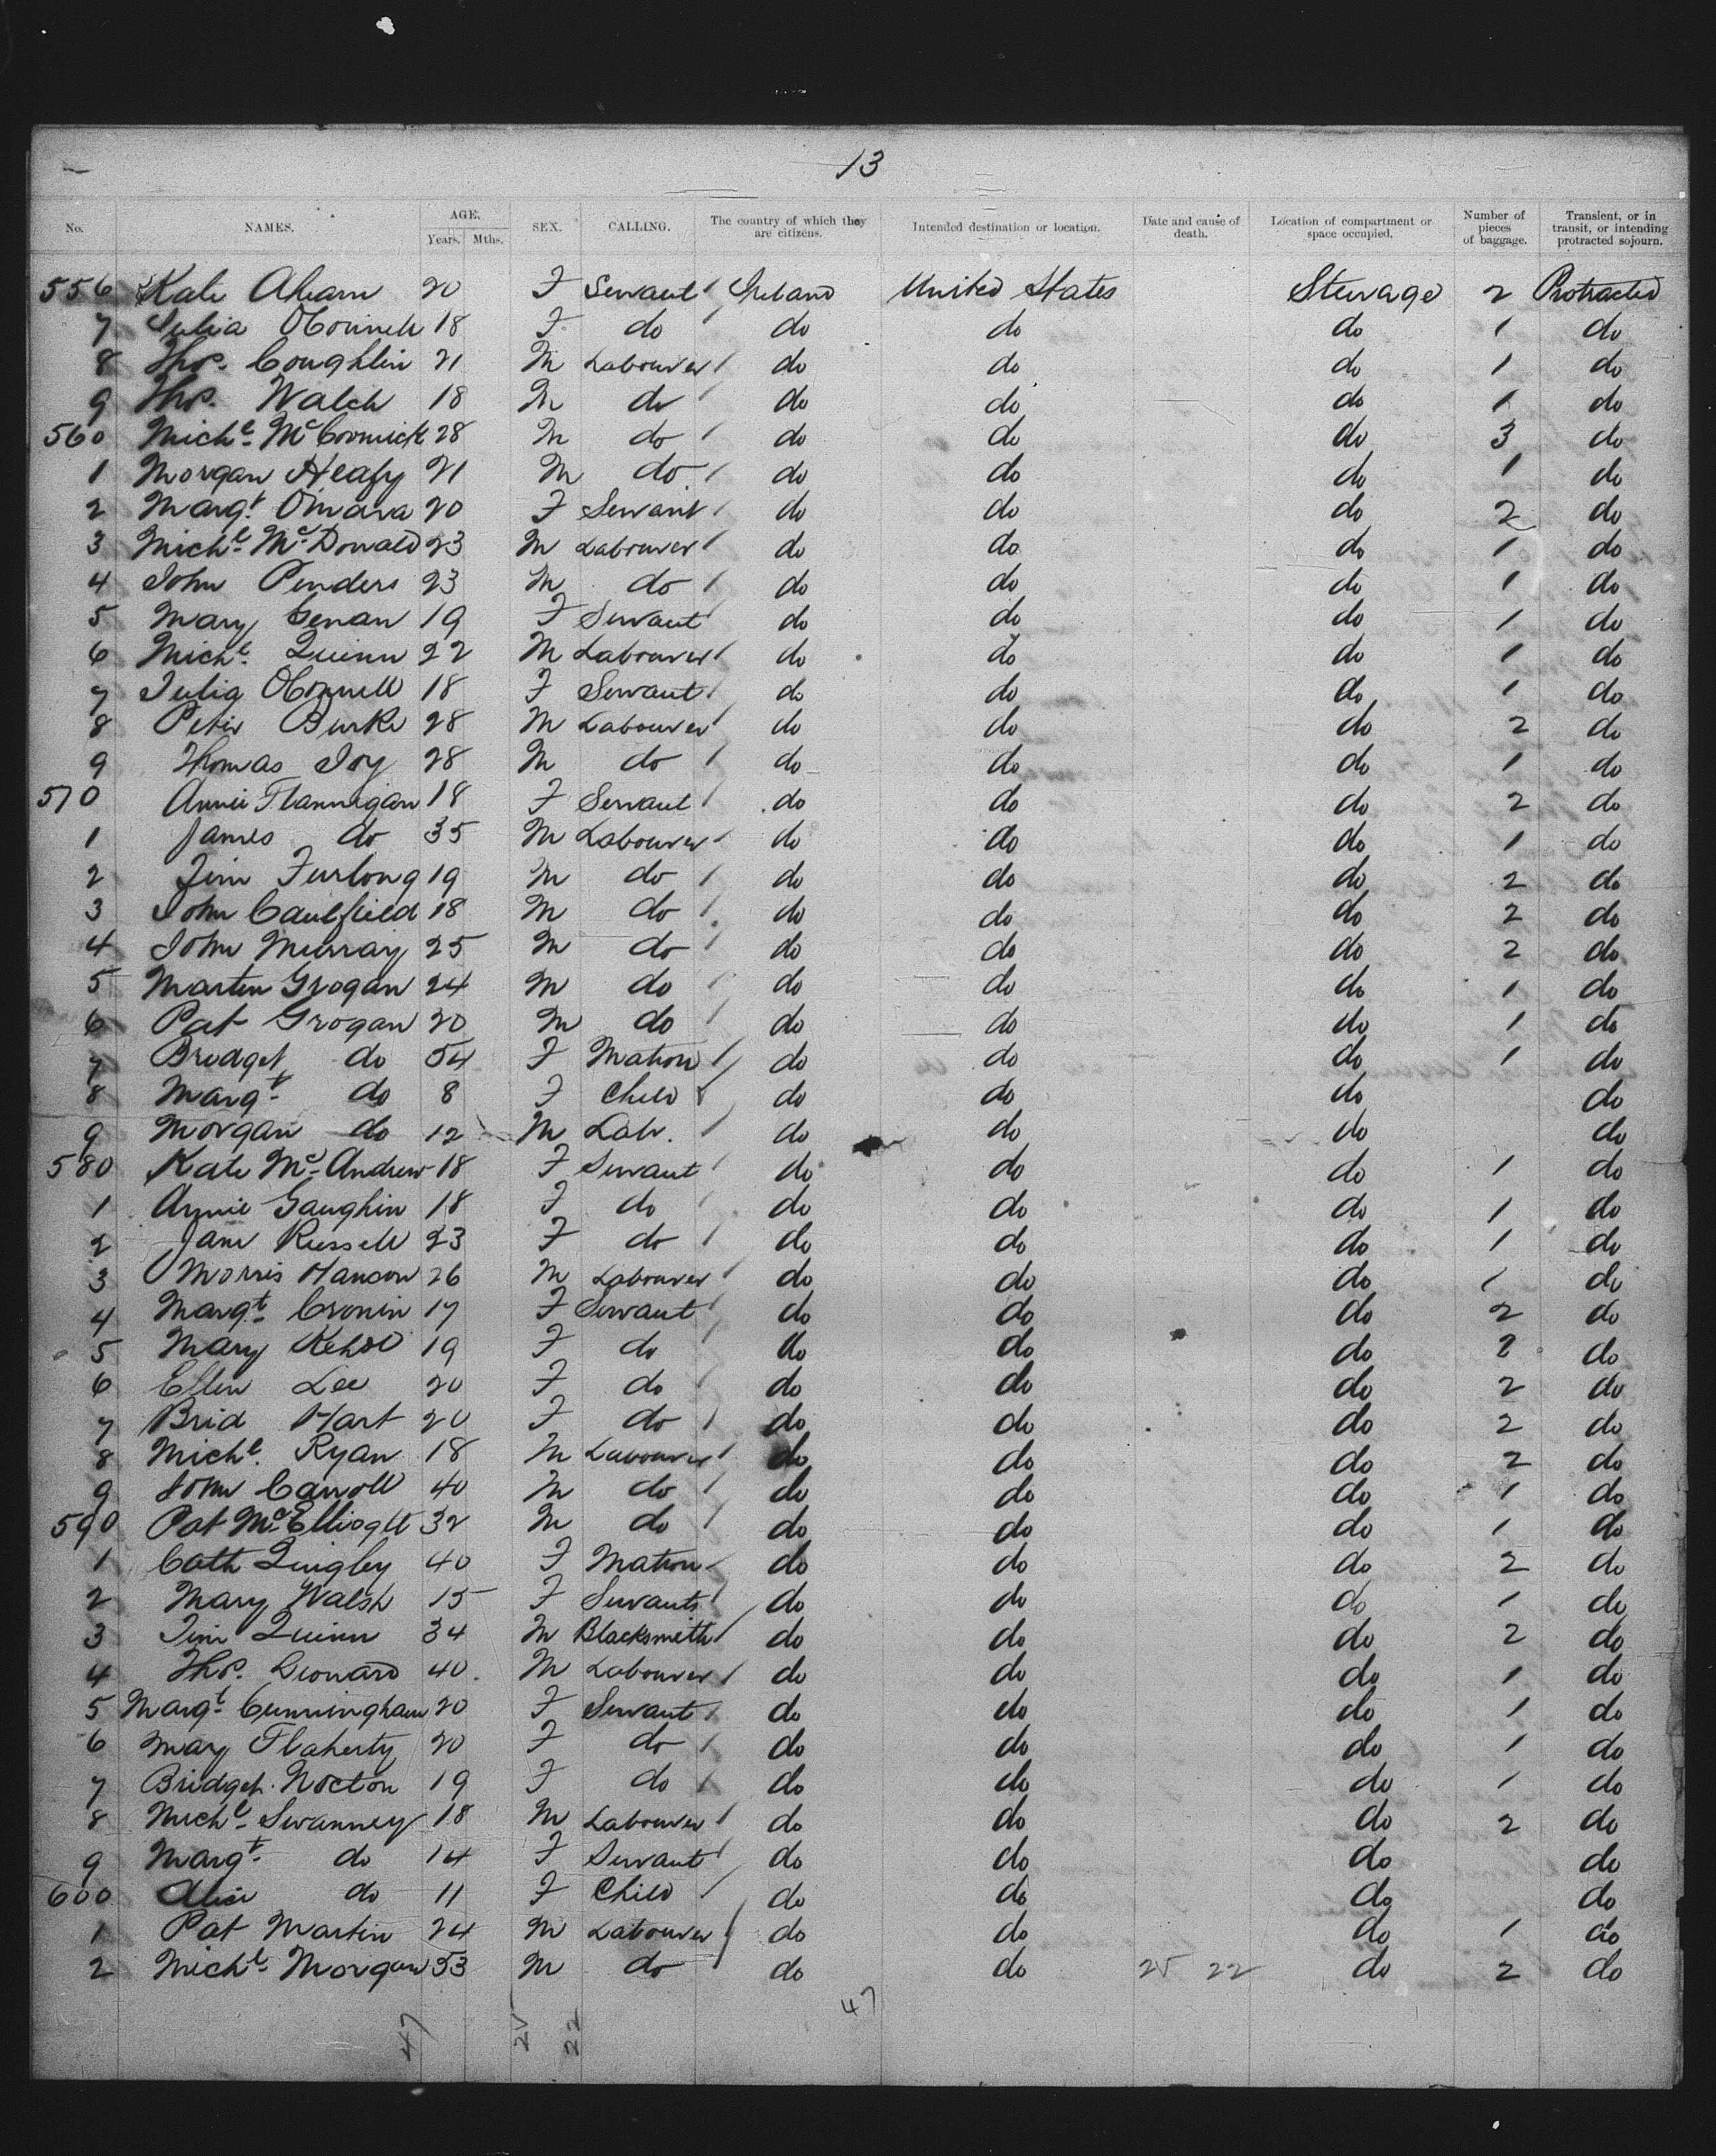 13
No. NAMES. AGE. Years. Mths. SEX. CALLING. The country of which they are citizens. Intended destination or location. Date and cause of death. Location of compartment or space occupied. Number of pieces of baggage. Transient, or in transit, or intending protracted sojourn.
556 Kate Ahearn 20 F Servant Ireland United States Steerage 2 Protracted
7 Julia OConnell 18 F do do do do 1 do
8 Thos. Coughlin 21 M Labourer do do do 1 do
9 Thos. Walch 18 M do do do do 1 do
560 Michl. McCormick 28 M do do do do 3 do
1 Morgan Heafy 21 M do do do do 1 do
2 Margt. Omara 20 F Servant do do do 2 do
3 Michl. McDonald 23 M Labourer do do do 1 do
4 John Penders 23 M do do do do 1 do
5 Mary 19 F Servant do do do 1 do
6 Michl. Quinn 22 M Labourer do do do 1 do
7 Julia OConnell 18 F Servant do do do 1 do
8 Peter Burke 28 M Labourer do do do 2 do
9 Thomas Joy 28 M do do do do 1 do
570 Annie Flannigan 18 F Servant do do do 2 do
1 James do 35 M Labourer do do do 1 do
2 Jim Furlong 19 M do do do do 2 do
3 John Caulfield 18 M do do do do 2 do
4 John Murray 25 M do do do do 2 do
5 Martin Grogan 24 M do do do do 1 do
6 Pat Grogan 20 M do do do do 1 do
7 Bridget do 54 F Matron do do do 1 do
8 Margt. do 8 F Child do do do do
9 Morgan do 12 M Labr. do do do do
580 Kate McAndrew 18 F Servant do do do 1 do
1 Annie Gaughin 18 F do do do do 1 do
2 Jane Russell 23 F do do do do 1 do
3 Morris Hancon 26 M Labourer do do do 1 do
4 Margt. Cronin 17 F Servant do do do 2 do
5 Mary Kehoe 19 F do do do do 2 do
6 Ellen Lee 20 F do do do do 2 do
7 Brid Hart 20 F do do do do 2 do
8 Michl. Ryan 18 M Labourer do do do 2 do
9 John Carroll 40 M do do do do 1 do
590 Pat McElliogtt 32 M do do do do 1 do
1 Cath Quigley 40 F Matron do do do 2 do
2 Mary Walsh 15 F Servants do do do 1 do
3 Jim Quinn 34 M Blacksmith do do do 2 do
4 Thos. Leonard 40 M Labourer do do do 1 do
5 Margt. Cunningham 20 F Servant do do do 1 do
6 Mary Flaherty 20 F do do do do 1 do
7 Bridget Nocton 19 F do do do do 1 do
8 Michl. Swanney 18 M Labourer do do do 2 do
9 Margt. do 14 F Servant do do do do
600 Alice do 11 F Child do do do do
1 Pat Martin 24 M Labourer do do do 1 do
2 Michl. Morgan 53 M do do do 25 22 do 2 do
47 25 22 47